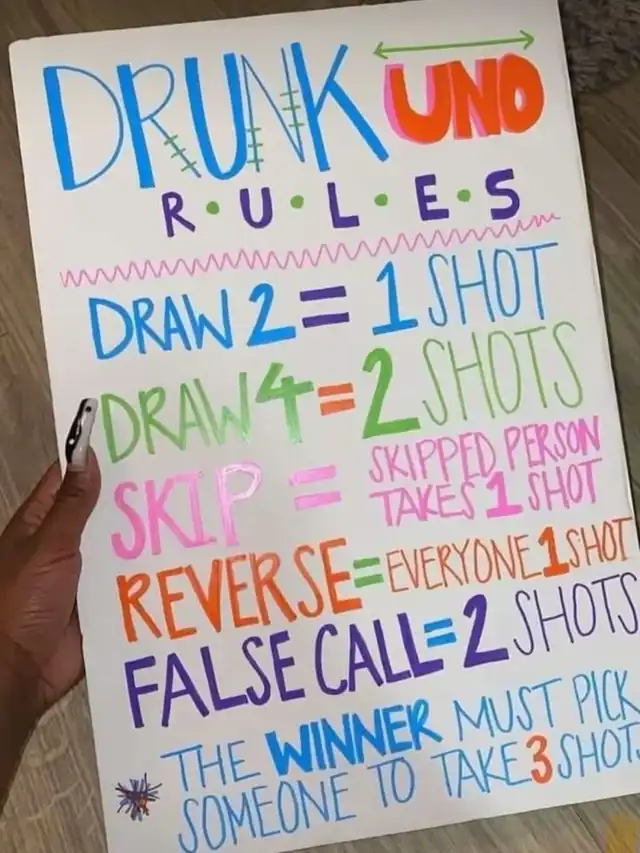 DRUNK UNO
R·U·L·E·S
DRAW 2 = 1 SHOT
DRAW 4 = 2 SHOTS
SKIP = SKIPPED PERSON
TAKES 1 SHOT
REVERSE = EVERYONE 1 SHOT
FALSE CALL = 2 SHOTS
THE WINNER MUST PICK
SOMEONE TO TAKE 3 SHOTS